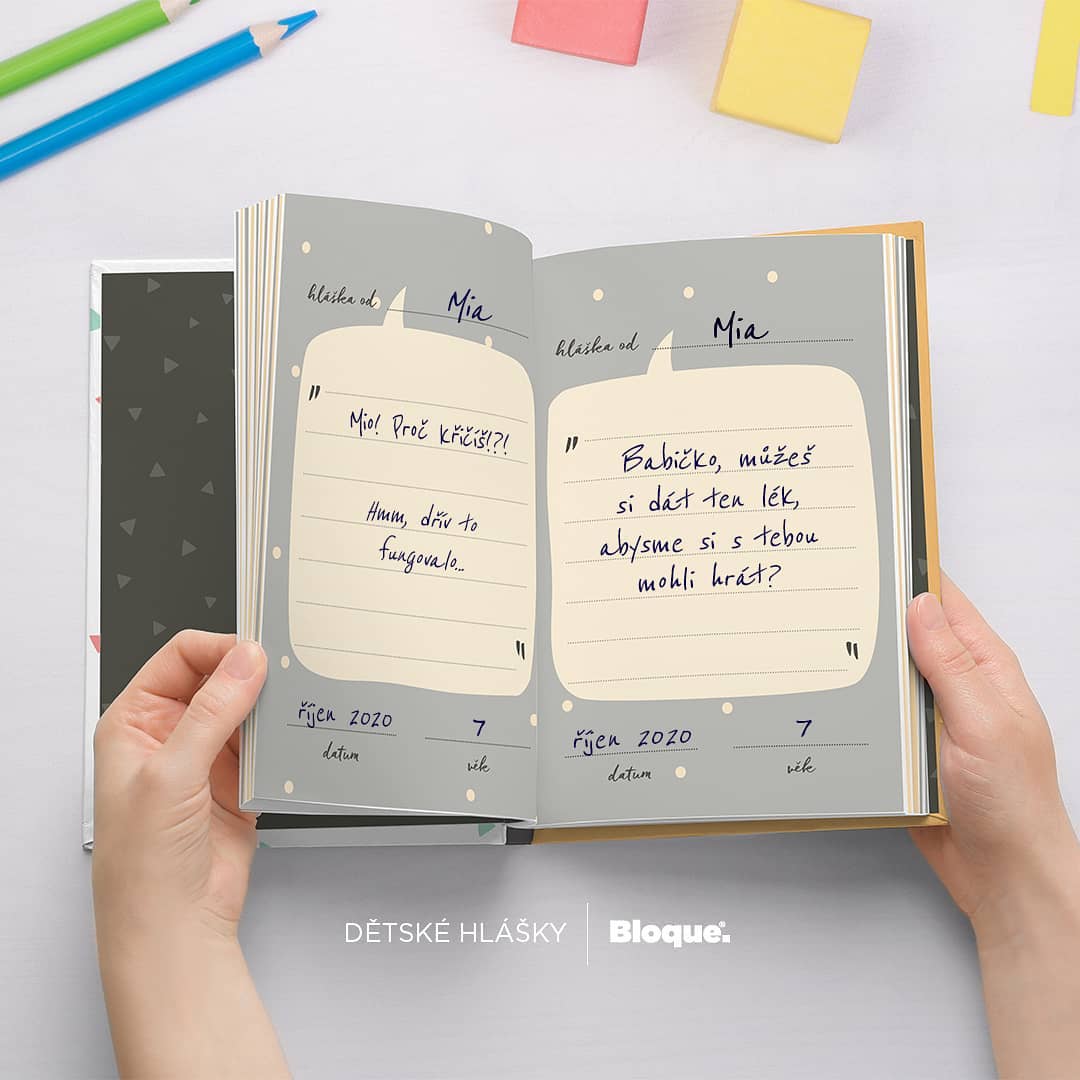 hláška od Mia
"
Mio! Proč křičíš!?!
Hmm, dřív to
fungovalo...
"
říjen 2020 7
datum věk
hláška od Mia
"
Babičko, můžeš
si dát ten lék,
abysme si s tebou
mohli hrát?
"
říjen 2020 7
datum věk
DĚTSKÉ HLÁŠKY Bloque®.